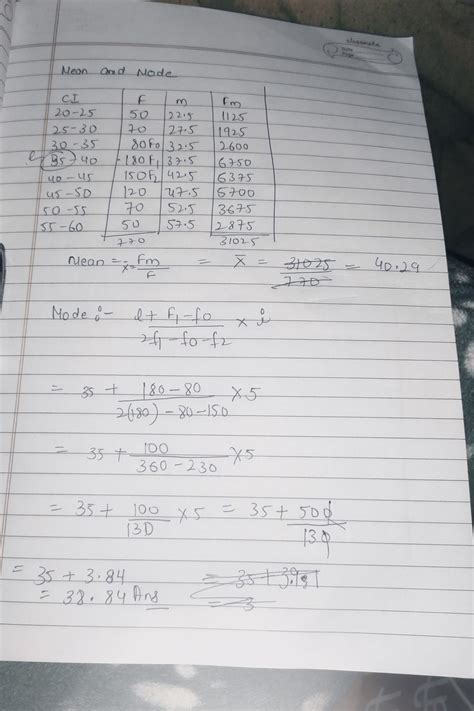 classmate
Date
Page
Mean and Mode
CI F m Fm
20-25 50 22.5 1125
25-30 70 27.5 1925
30-35 80F0 32.5 2600
l 35-40 180F1 37.5 6750
40-45 150F2 42.5 6375
45-50 120 47.5 5700
50-55 70 52.5 3675
55-60 50 57.5 2875
770 31025
Mean = x̄ = Fm/F = x̄ = 31025/770 = 40.29
Mode :- l + F1-f0/2f1-f0-f2 × i
= 35 + 180-80/2(180)-80-150 ×5
= 35 + 100/360-230 ×5
= 35 + 100/130 ×5 = 35 + 500/130
= 35 + 3.84
= 38.84 Ans
= 3